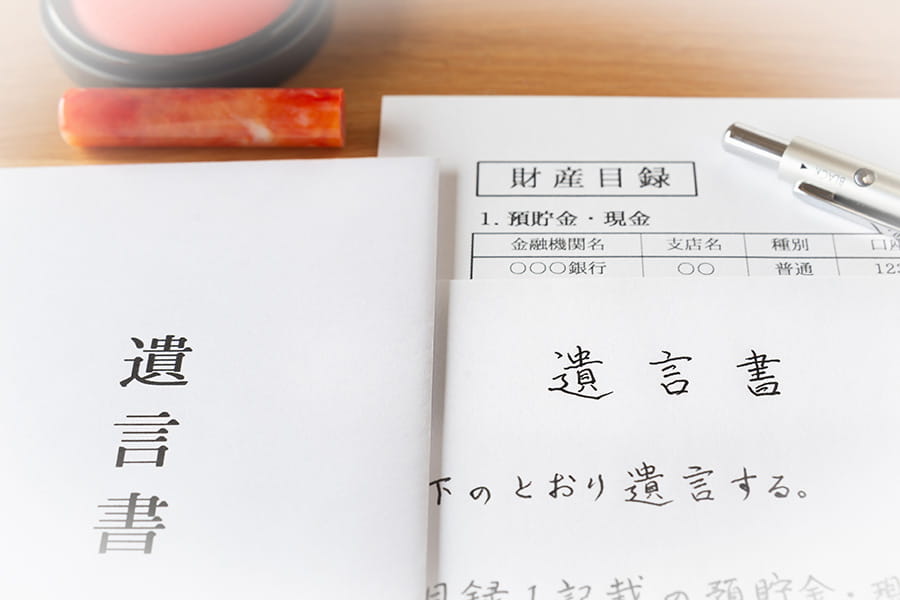 遺言書
財産目録
1. 預貯金・現金
金融機関名 支店名 種別 口座
〇〇〇銀行 〇〇 普通 122
遺言書
下のとおり遺言する。
目録1記載の預貯金・現
BLACK